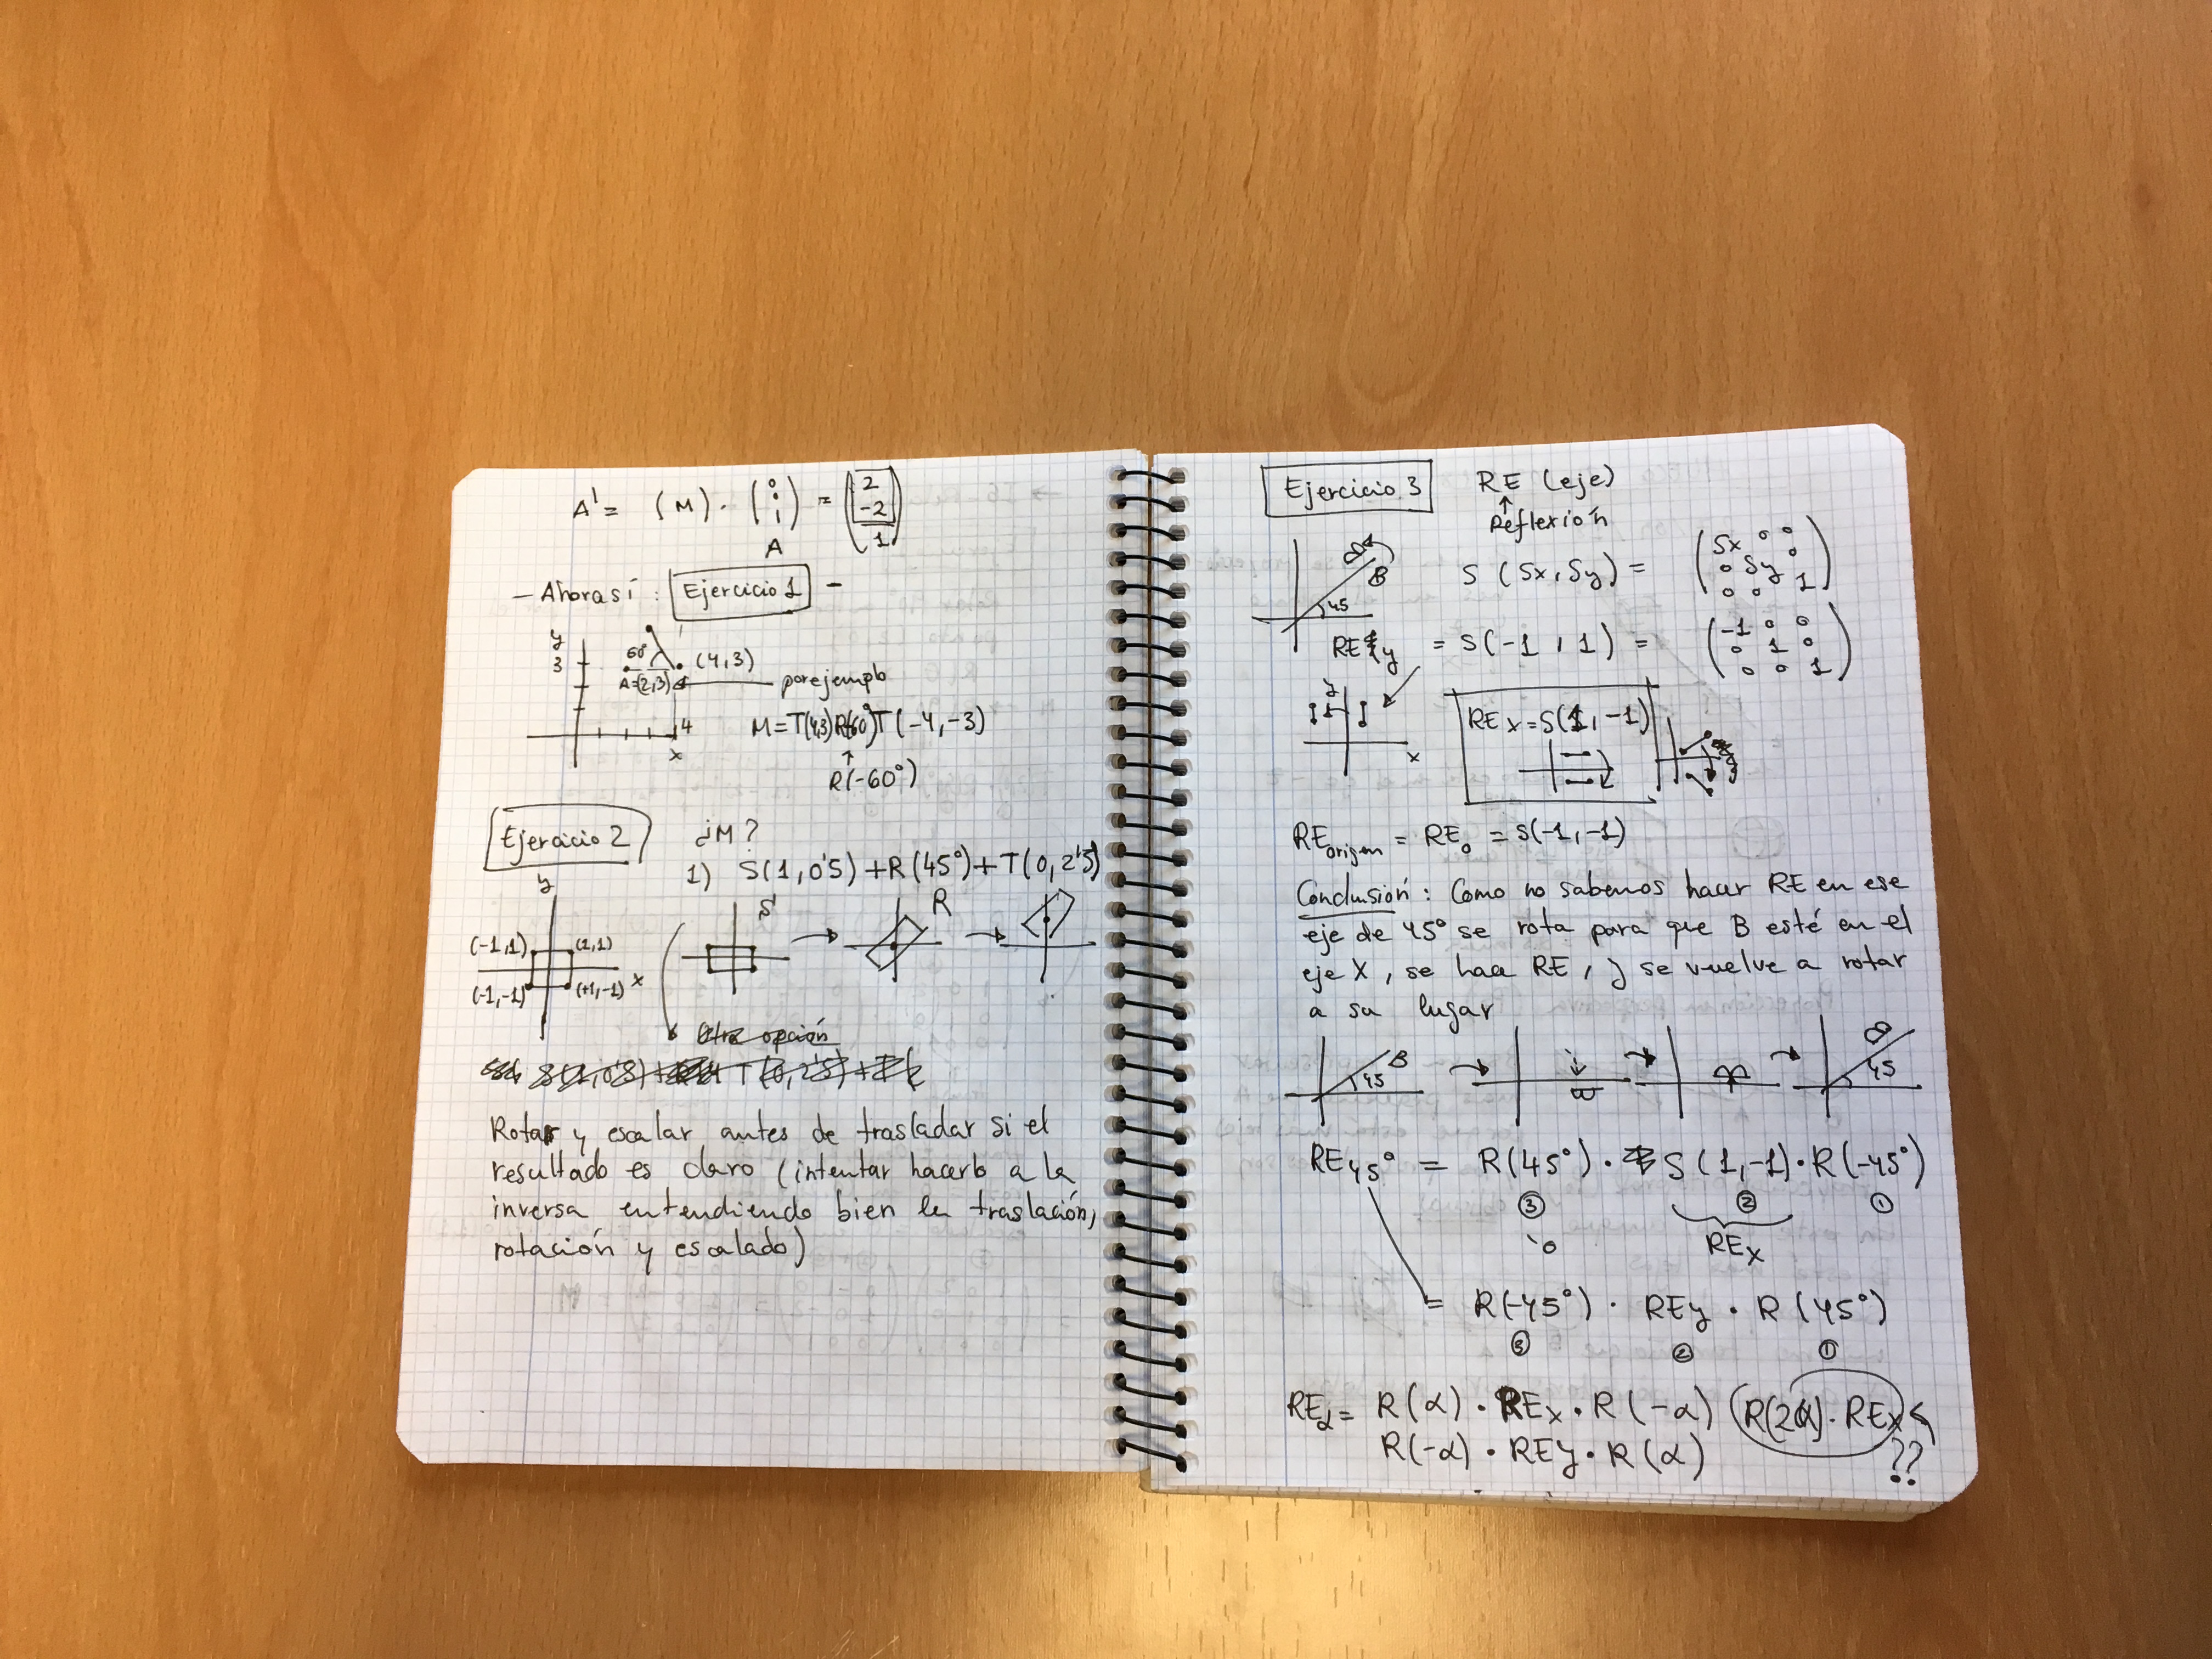 A' = (M) · (0 1 1) = (2 -2 1)
A
- Ahora sí: Ejercicio 1 -
y
3
60º
(4,3)
A=(2,3)
por ejemplo
4
x
M=T(4,3)R(60º)T(-4,-3)
↑
R(-60º)
Ejercicio 2
¿M?
1) S(1,0'5)+R(45º)+T(0,2'5)
y
(-1,1)
(1,1)
(-1,-1)
(+1,-1)
x
S
→
R
→
Otra opción
Rotar y escalar antes de trasladar si el
resultado es claro (intentar hacerlo a la
inversa entendiendo bien la traslación,
rotación y escalado)
Ejercicio 3
RE (eje)
↑
Reflexión
45
B
S(Sx,Sy) =
(Sx 0 0
0 Sy 0
0 0 1)
REy = S(-1,1) =
(-1 0 0
0 1 0
0 0 1)
y
x
REx=S(1,-1)
REorigen = REo = S(-1,-1)
Conclusión: Como no sabemos hacer RE en ese
eje de 45º se rota para que B esté en el
eje X, se hace RE, y se vuelve a rotar
a su lugar
45
B
→
→
→
45
RE45º = R(45º) · S(1,-1) · R(-45º)
③ ② ①
REx
ò
= R(-45º) · REy · R(45º)
③ ② ①
REα = R(α) · REx · R(-α) (R(2α) · REx
R(-α) · REy · R(α)
¿?